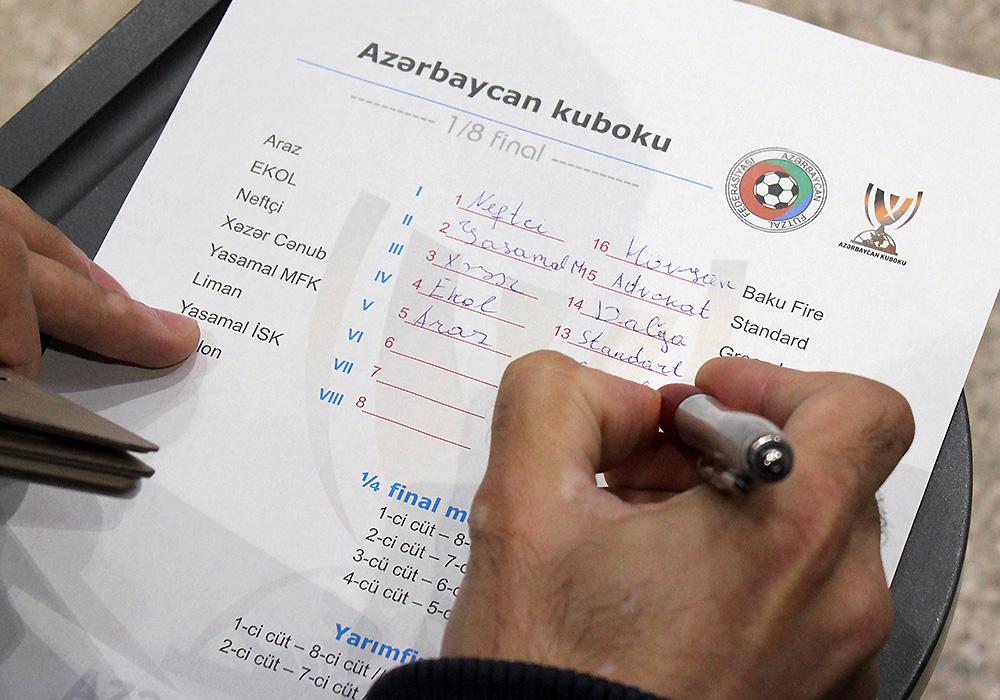 Azərbaycan kuboku
1/8 final
FEDERASİYASI AZƏRBAYCAN FUTZAL
AZƏRBAYCAN KUBOKU
Araz
EKOL
Neftçi
Xəzər Cənub
Yasamal MFK
Liman
Yasamal İSK
lon
I 1 Neftci
II 2 Yasamal M
III 3 Xəzər
IV 4 Ekol
V 5 Araz
VI 6
VII 7
VIII 8
16 Hovsan
15 Advokat
14 Dalğa
13 Standart
Baku Fire
Standard
1/4 final m
1-ci cüt – 8-
2-ci cüt – 7-c
3-cü cüt – 6-c
4-cü cüt – 5-c
Yarımfi
1-ci cüt – 8-ci cüt /
2-ci cüt – 7-ci cüt